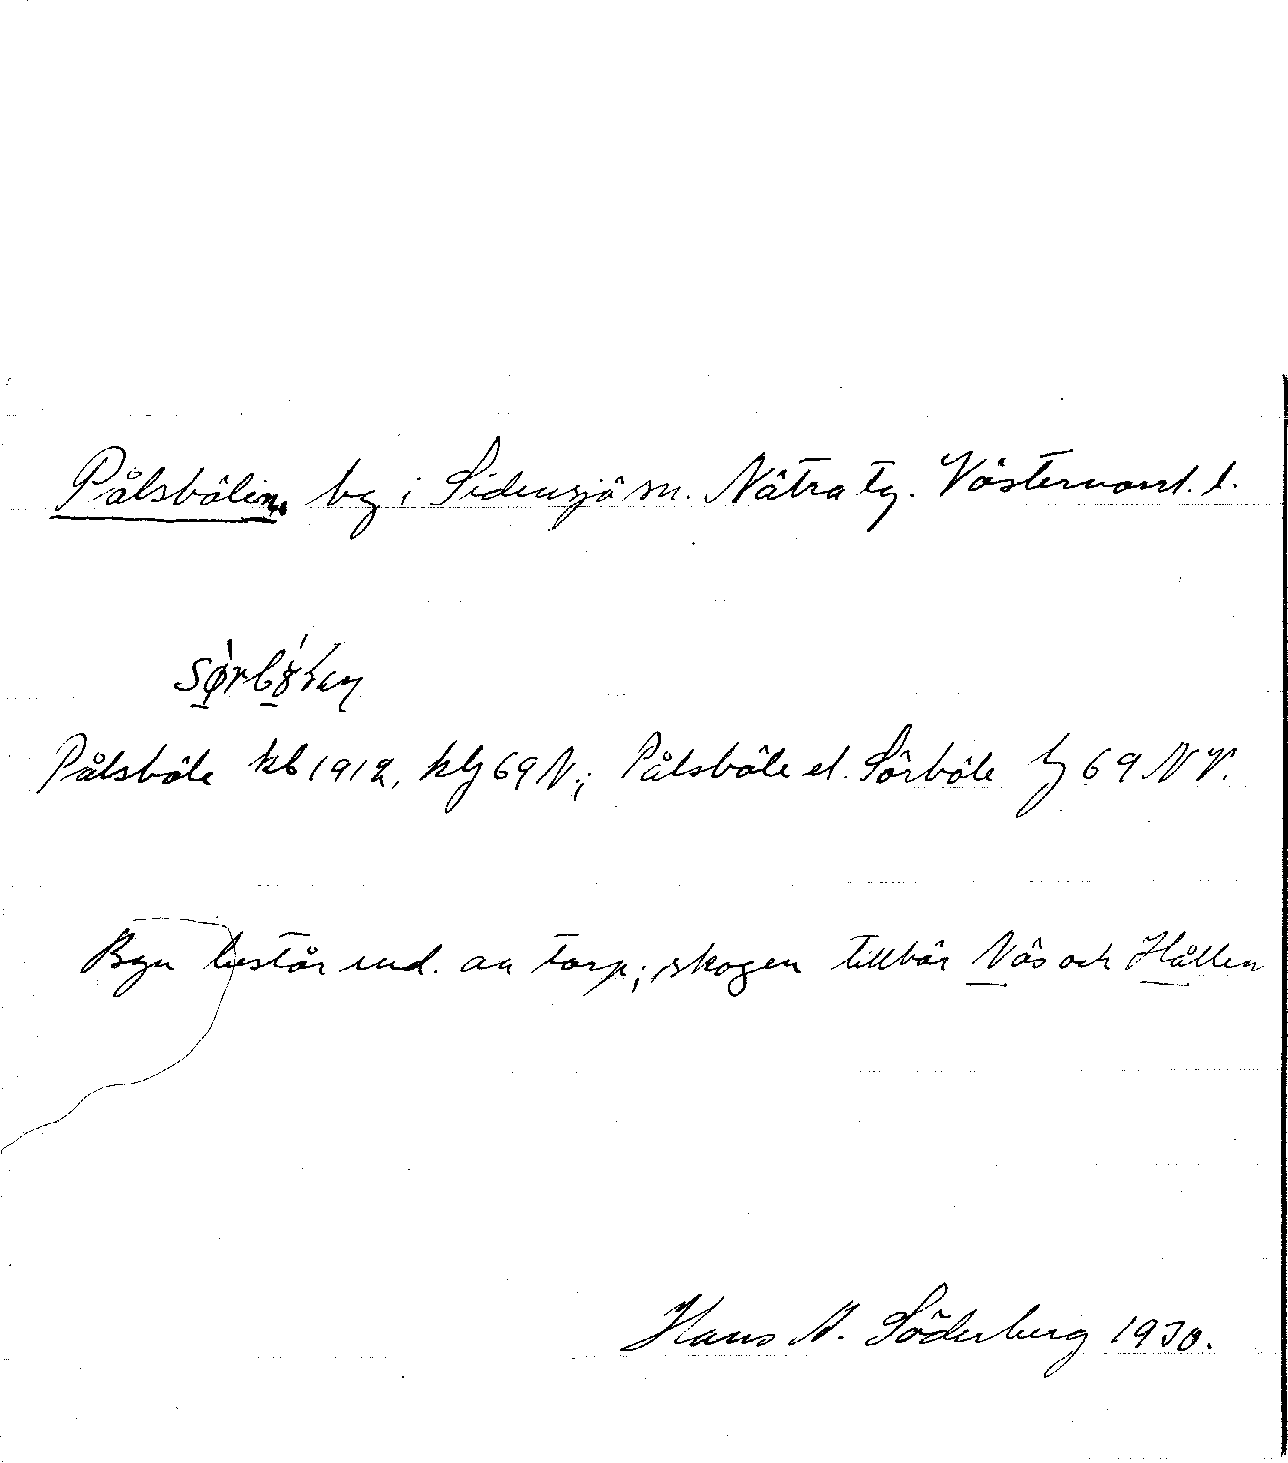 Pålsböle, by i Sidensjö sn. Nätra tg. Västernorrl. l.
Pålsböle kb 1912, klj 69 N.; Pålsböle el. Sörböle lj 69 N V.
Byn består end. av torp; skogen tillhör Näs och Hållen
Hans N. Söderberg 1930.